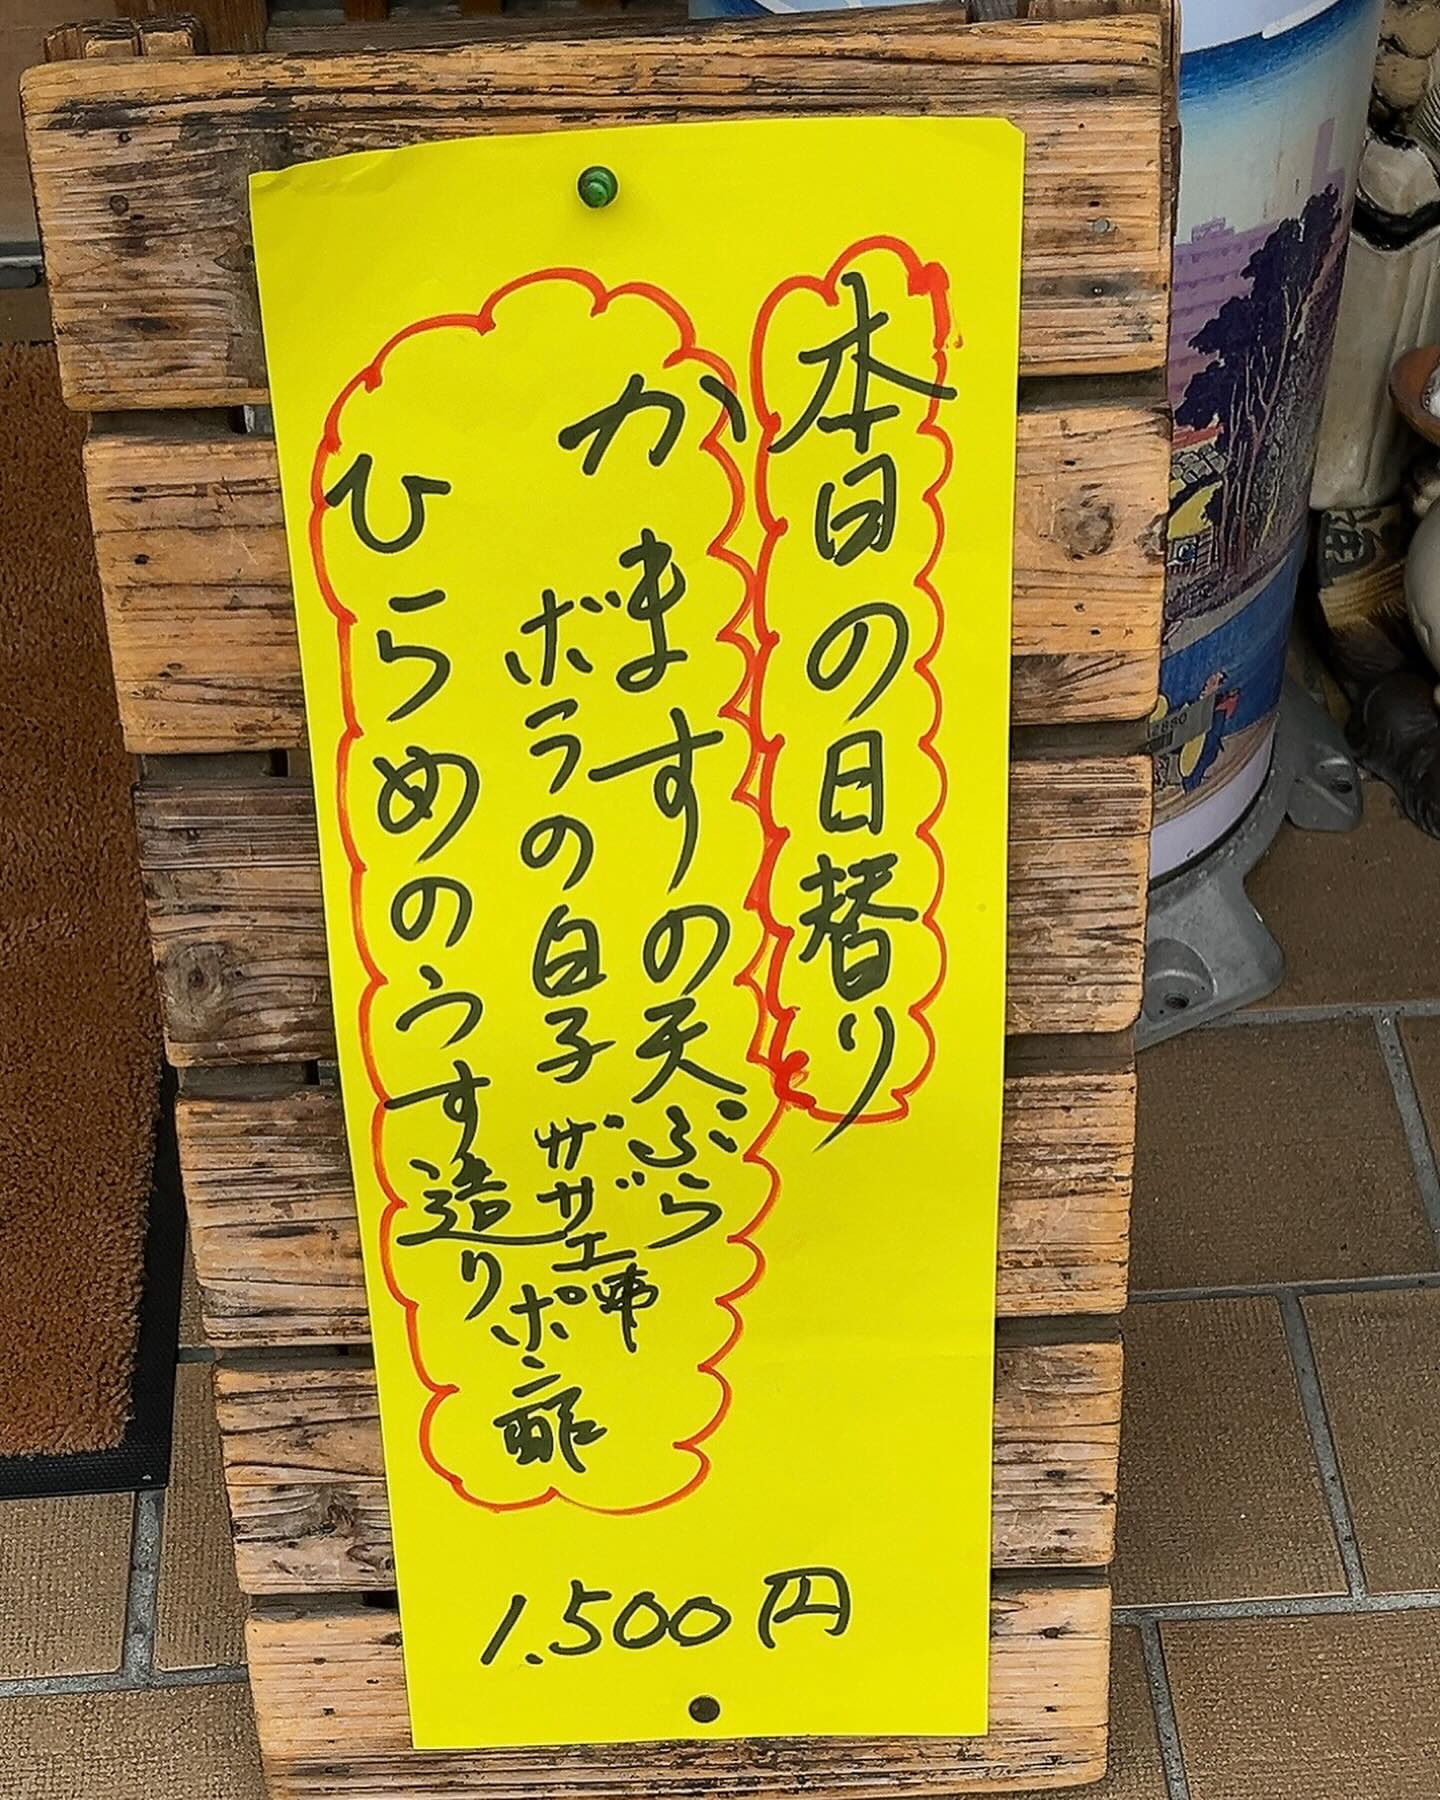 本日の日替り
かますの天ぷら
ボラの白子
サザエ
ポン酢
ひらめのうす造り
1,500円